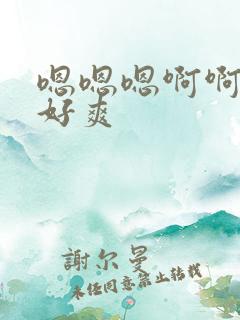 嗯嗯嗯啊啊
好爽
謝尔曼
未经同意禁止转载